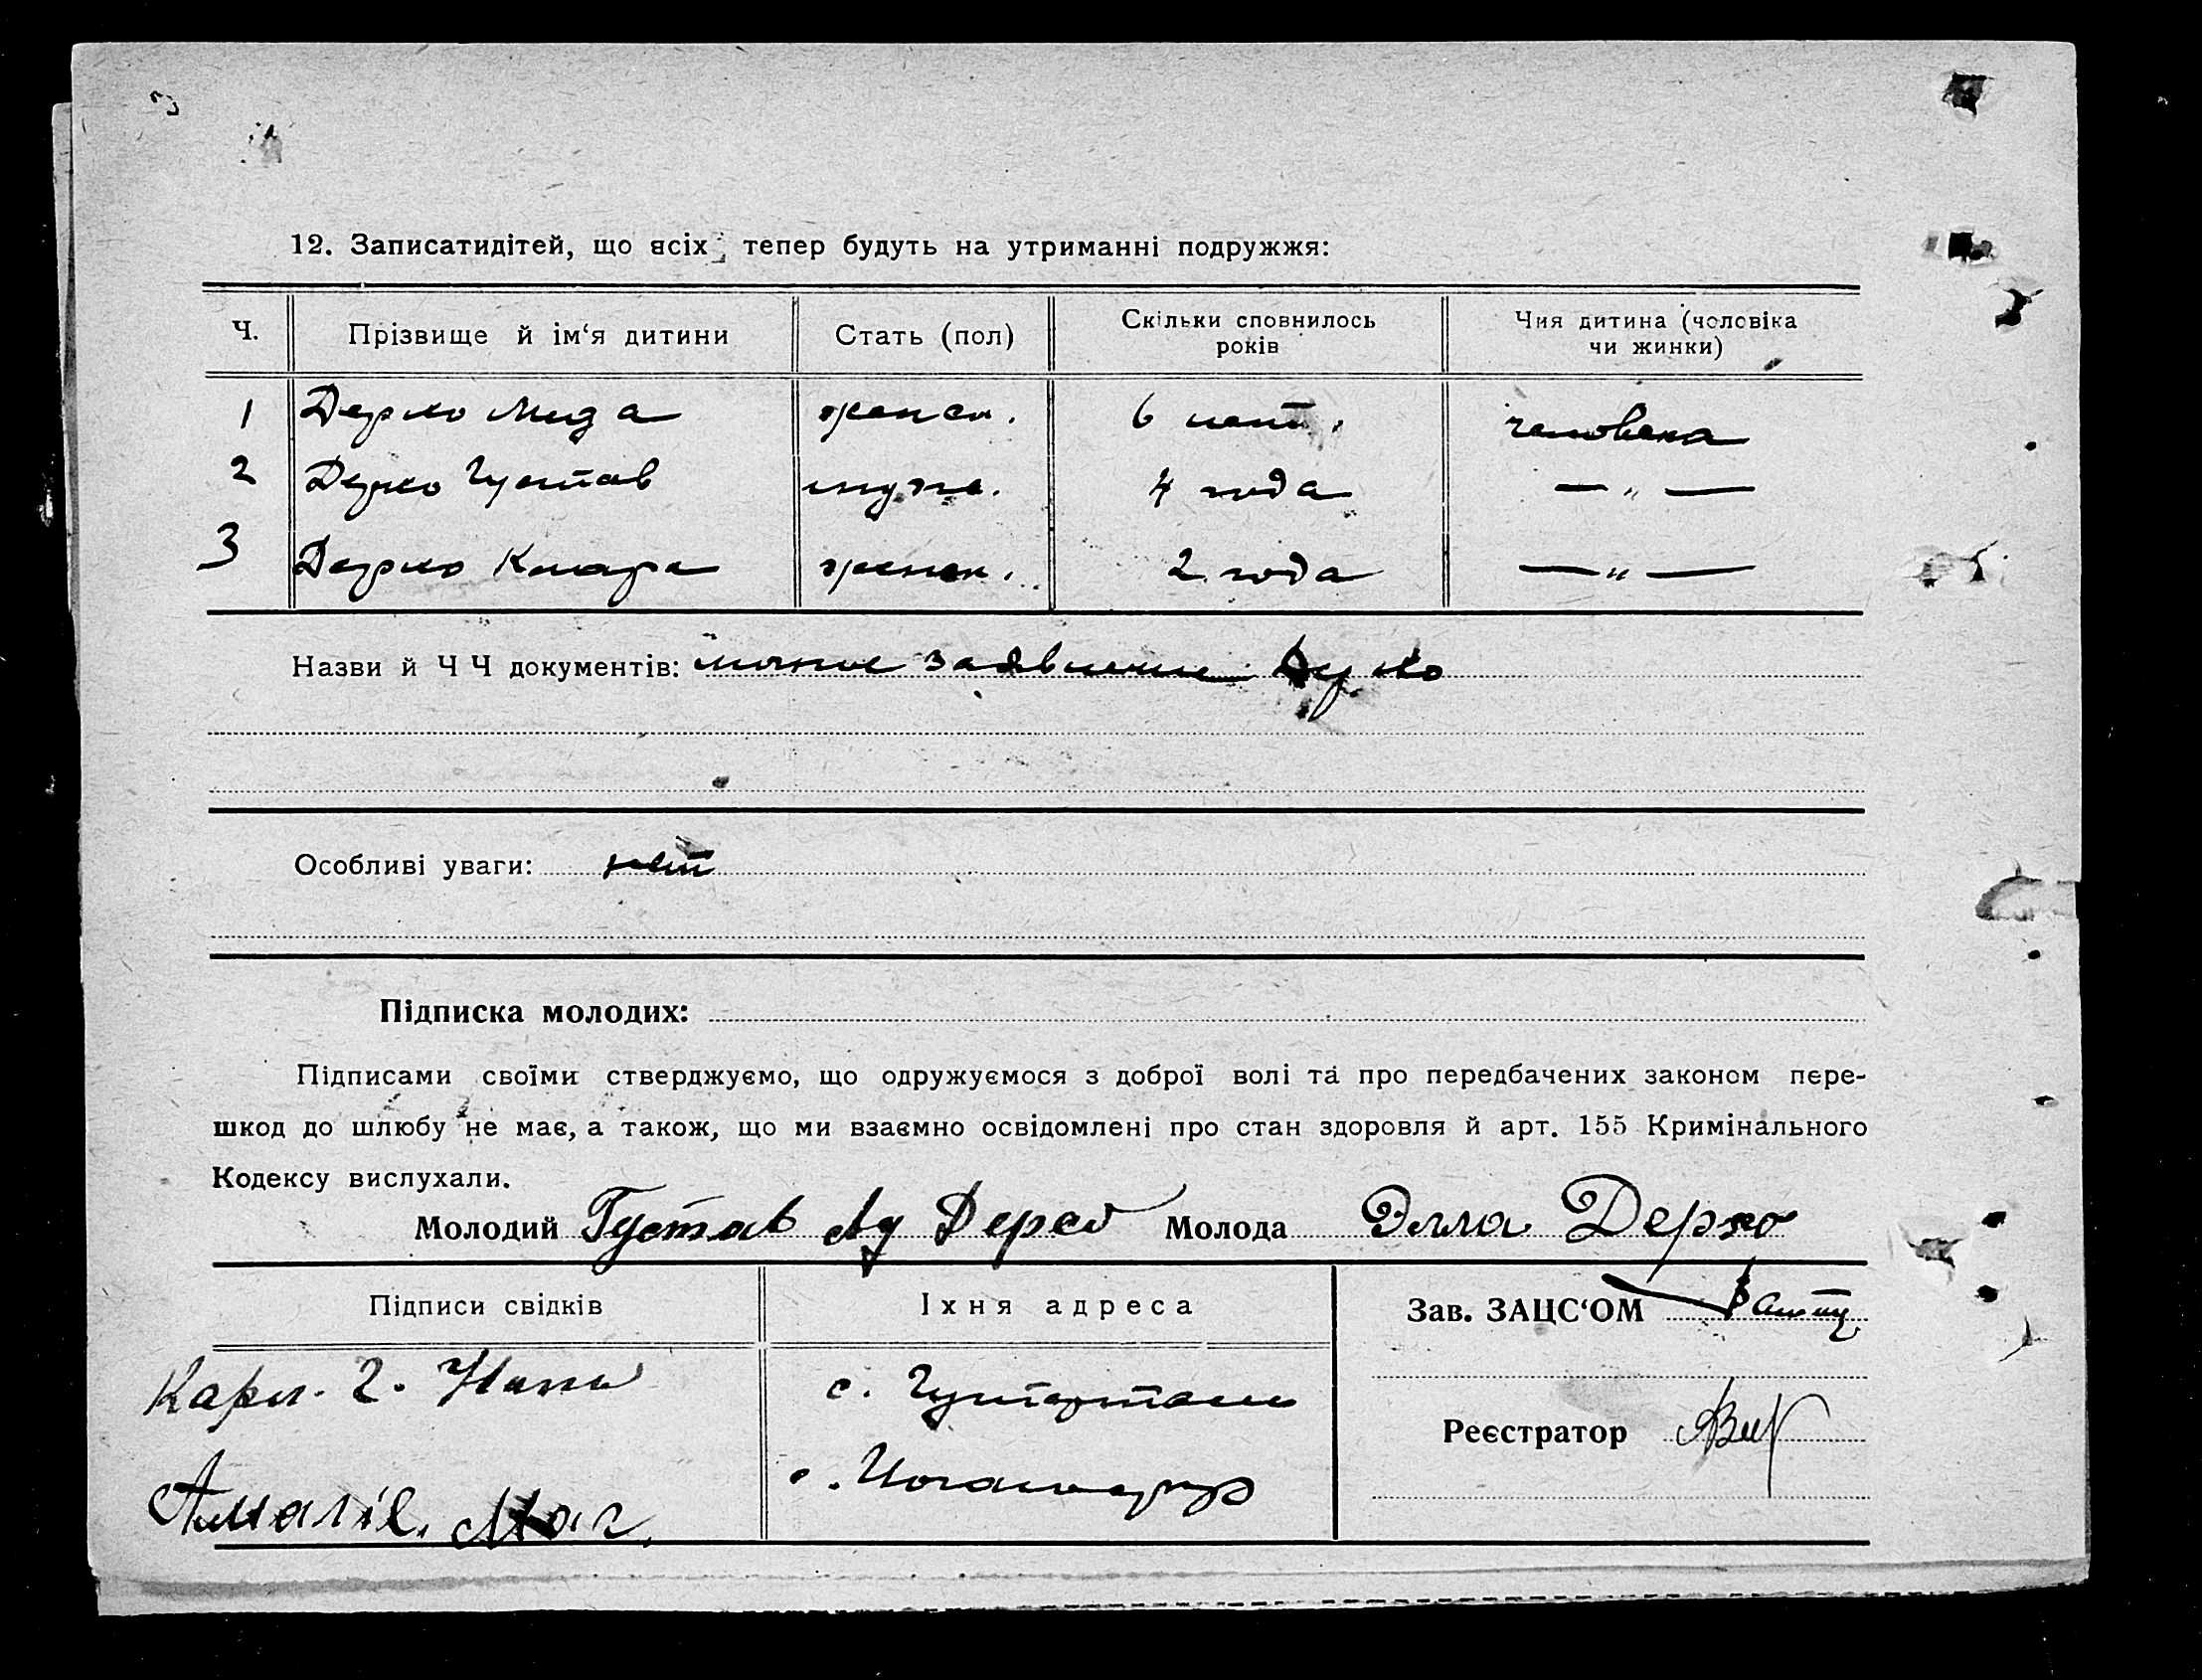 12. Записатидітей, що всіх тепер будуть на утриманні подружжя:
Ч. Прізвище й ім‘я дитини Стать (пол) Скільки сповнилось років Чия дитина (чоловіка чи жинки)
1 Дерко Лида женск. 6 лет. человека
2 Дерко Густав мужс. 4 года — „ —
3 Дерко Клара женск. 2 года — „ —
Назви й Ч Ч документів: личное заявление Дерко
Особливі уваги: нет
Підписка молодих:
Підписами своїми стверджуємо, що одружуємося з доброї волі та про передбачених законом пере-
шкод до шлюбу не має, а також, що ми взаємно освідомлені про стан здоровля й арт. 155 Кримінального
Кодексу вислухали.
Молодий Густав Ад Дерко Молода Элла Дерко
Підписи свідків Їхня адреса Зав. ЗАЦС‘ОМ
Карл. Г. с.
Реєстратор
Амалія. с.